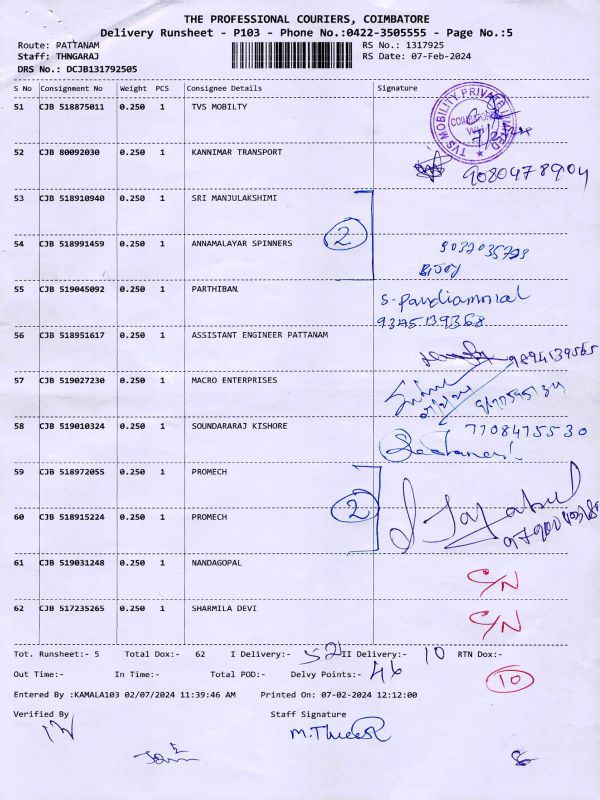 THE PROFESSIONAL COURIERS, COIMBATORE
Delivery Runsheet - P103 - Phone No.:0422-3505555 - Page No.:5
Route: PATTANAM RS No.: 1317925
Staff: THNGARAJ RS Date: 07-Feb-2024
DRS No.: DCJB131792505
S No Consignment No Weight PCS Consignee Details Signature
51 CJB 518875011 0.250 1 TVS MOBILTY
TVS MOBILITY PRIVATE LIMITED
52 CJB 80092030 0.250 1 KANNIMAR TRANSPORT 9080478904
53 CJB 518910940 0.250 1 SRI MANJULAKSHIMI
2
54 CJB 518991459 0.250 1 ANNAMALAYAR SPINNERS
55 CJB 519045092 0.250 1 PARTHIBAN
56 CJB 518951617 0.250 1 ASSISTANT ENGINEER PATTANAM 9894139565
57 CJB 519027230 0.250 1 MACRO ENTERPRISES
58 CJB 519010324 0.250 1 SOUNDARARAJ KISHORE 7708475530
59 CJB 518972055 0.250 1 PROMECH
2
60 CJB 518915224 0.250 1 PROMECH
61 CJB 519031248 0.250 1 NANDAGOPAL C/N
62 CJB 517235265 0.250 1 SHARMILA DEVI C/N
Tot. Runsheet:- 5 Total Dox:- 62 I Delivery:- 52 II Delivery:- 10 RTN Dox:-
Out Time:- In Time:- Total POD:- Delvy Points:- 46 10
Entered By :KAMALA103 02/07/2024 11:39:46 AM Printed On: 07-02-2024 12:12:00
Verified By Staff Signature